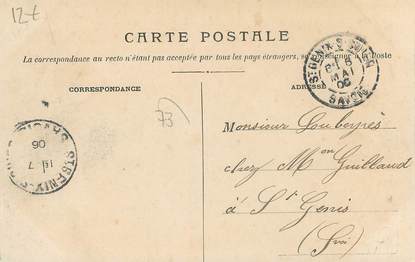 12€
CARTE POSTALE
La correspondance au recto n'étant pas acceptée par tous les pays étrangers, se renseigner à la Poste
CORRESPONDANCE
ADRESSE
73
ST GENIX-S-GUIERS
6
MAI
06
SAVOIE
Monsieur Louberyrès
chez Mon Guilland
à St Genis
06
7